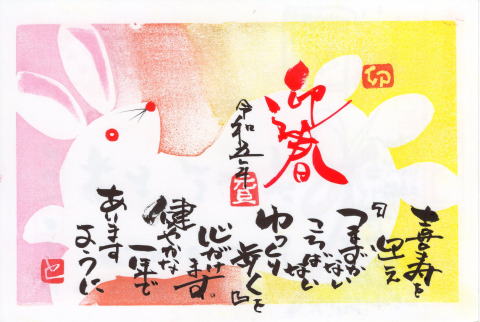 卯
迎春
令和五年
賀
喜寿を
迎え
『つまずかない
ころばない
ゆっくり
歩く』を
心がけ
ます。
健やかな
一年で
あります
ように